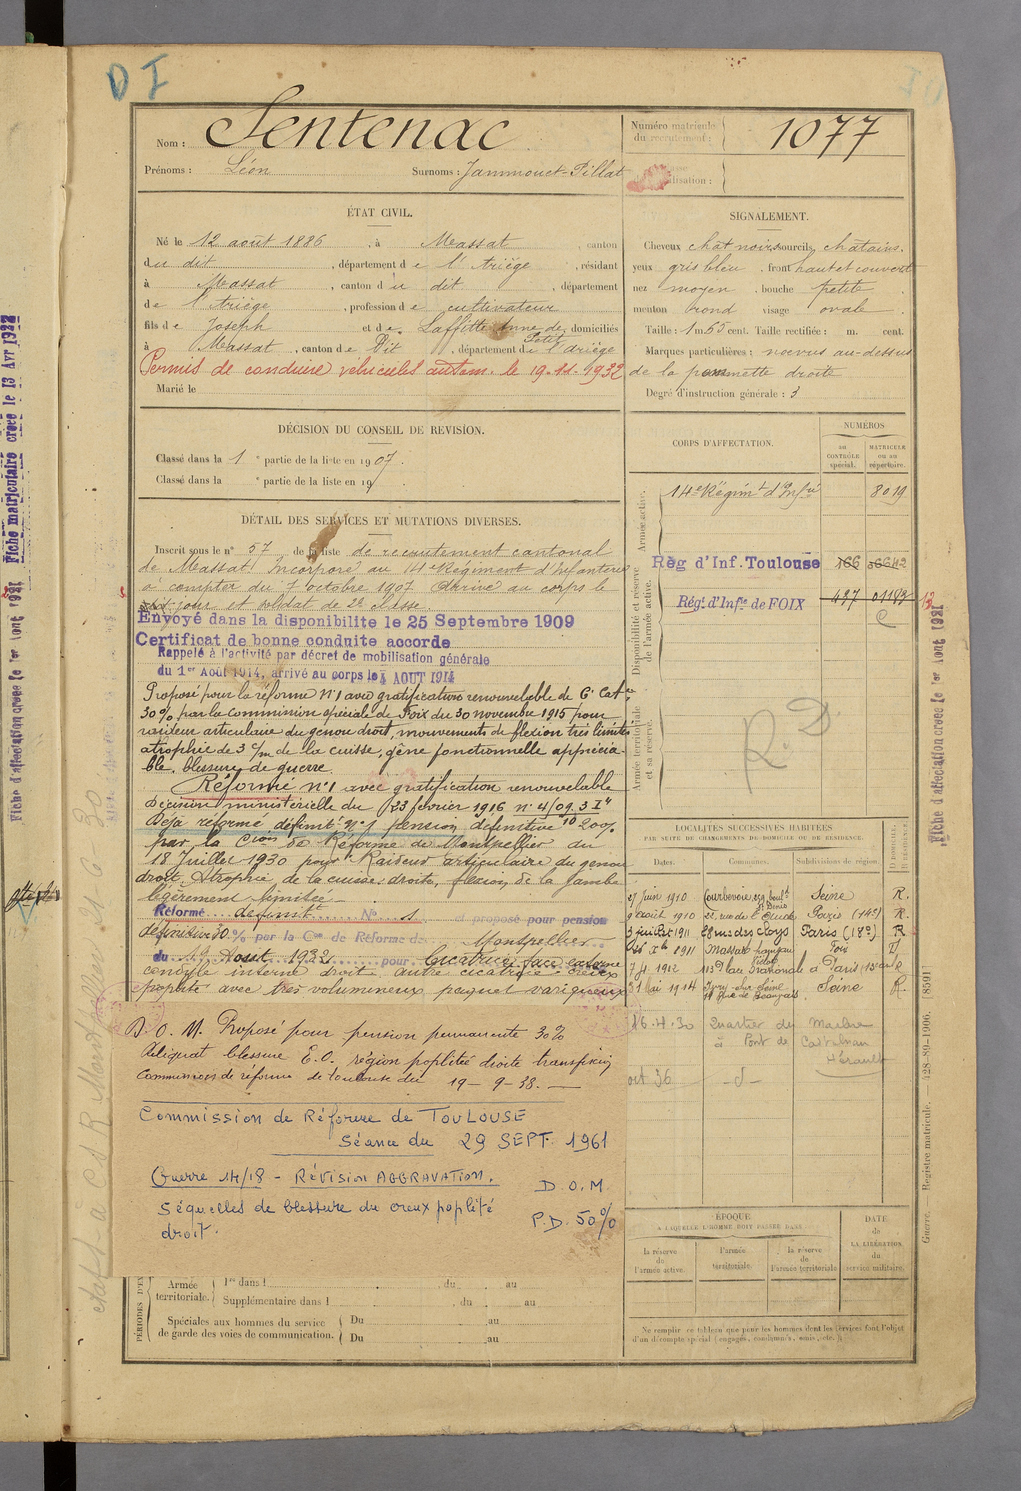 D I
Nom : Sentenac
Prénoms : Léon Surnoms : Jammouet-Pillat
Numéro matricule du recrutement : 1077
ÉTAT CIVIL.
Né le 12 août 1886, à Massat, canton
du dit, département de l'Ariège, résidant
à Massat, canton du dit, département
de l'Ariège, profession de cultivateur
fils de Joseph et de Laffitte Anne de, domiciliés
Petit
à Massat, canton de Dit, département de l'Ariège
Permis de conduire véhicules autom. le 19-11-1932
Marié le
SIGNALEMENT.
Cheveux chat noirs sourcils châtains.
yeux gris bleu, front haut et couvert
nez moyen, bouche petite
menton rond visage ovale
Taille : 1 m. 55 cent. Taille rectifiée : m. cent.
Marques particulières : noevus au-dessus
de la pommette droite
Degré d'instruction générale : 3
DÉCISION DU CONSEIL DE REVISION.
Classé dans la 1e partie de la liste en 1907.
Classé dans la e partie de la liste en 19
CORPS D'AFFECTATION.
NUMÉROS
au CONTRÔLE spécial.
MATRICULE ou au répertoire.
Armée active.
14e Régimt d'Infie 8019
Disponibilité et réserve de l'armée active.
Règ d'Inf. Toulouse 766
Régt. d'Infie de FOIX 437 01193
C
Armée territoriale et sa réserve.
R. D.
DÉTAIL DES SERVICES ET MUTATIONS DIVERSES.
Inscrit sous le n° 57 de la liste de recrutement cantonal
de Massat Incorporé au 14e Régiment d'Infanterie
à compter du 7 octobre 1907 Arrivé au corps le
dit jour et soldat de 2e classe.
Envoyé dans la disponibilite le 25 Septembre 1909
Certificat de bonne conduite accorde
Rappelé à l'activité par décret de mobilisation générale
du 1er Août 1914, arrivé au corps le 4 AOUT 1914
Proposé pour la réforme n°1 avec gratification renouvelable de 6e Catie
30% par la Commission spéciale de Foix du 30 novembre 1915 pour
raideur articulaire du genou droit, mouvements de flexion très limités
atrophie de 3 c/m de la cuisse, gêne fonctionnelle apprécia-
ble. blessure de guerre.
Réformé n°1 avec gratification renouvelable
Décision ministérielle du 23 février 1916 n° 4/09.3 Is
Déjà réformé définitt n°1 pension définitive 10 20%
par la Cion de Réforme de Montpellier du
18 Juillet 1930 pour Raideur articulaire du genou
droit. Atrophie de la cuisse droite, flexion de la jambe
légèrement limitée -
Réformé définitt No 1 et proposé pour pension
définitive 30 % par la Con de Réforme de Montpellier
du 19 Aout 1932 pour Cicatrice face externe
condyle interne droit autre cicatrice creux
poplité avec très volumineux paquet variqueux
D. O. M. Proposé pour pension permanente 30%
Reliquat blessure E.O. région poplitée droite transfixion
Commission de réforme de Toulouse du 19-9-38.
Commission de Réforme de TOULOUSE
Séance du 29 SEPT. 1961
Guerre 14/18 - RÉVISION AGGRAVATION.
Séquelles de blessure du creux poplité
droit.
D. O. M.
P.D. 50%
LOCALITÉS SUCCESSIVES HABITÉES
PAR SUITE DE CHANGEMENTS DE DOMICILE OU DE RÉSIDENCE.
Dates. Communes. Subdivisions de région. D. DOMICILE, R. RÉSIDENCE
27 juin 1910 Courbevoie, 239 boult St Denis Seine R.
9 août 1910 22, rue de l'Aude Paris (14e) R.
3 juillet 1911 28 rue des Cloys Paris (18e) R
26 Xbre 1911 Massat Foix D
7 4 1912 113 Paris R
31 Mai 1914 Ivry-sur-Seine Seine R.
16-4-30 Quartier du
à Pont de Castelnau
Hérault
oct 36 -d-
ÉPOQUE
À LAQUELLE L'HOMME DOIT PASSER DANS
la réserve de l'armée active.
l'armée territoriale.
la réserve de l'armée territoriale
DATE de LA LIBÉRATION du service militaire.
Ne remplir ce tableau que pour les hommes dont les services font l'objet
d'un décompte spécial (engagés, condamnés, omis, etc.)
Armée territoriale. 1re dans l , du au
Supplémentaire dans l , du au
Spéciales aux hommes du service de garde des voies de communication. Du , au
Du , au
Guerre. Registre matricule. 428-89-1906. [859]
Fiche matriculaire créée le 13 Avr 1922
Fiche d'affectation créée le 1er Août 1921
Fiche d'affectation créée le 1er Août 1921